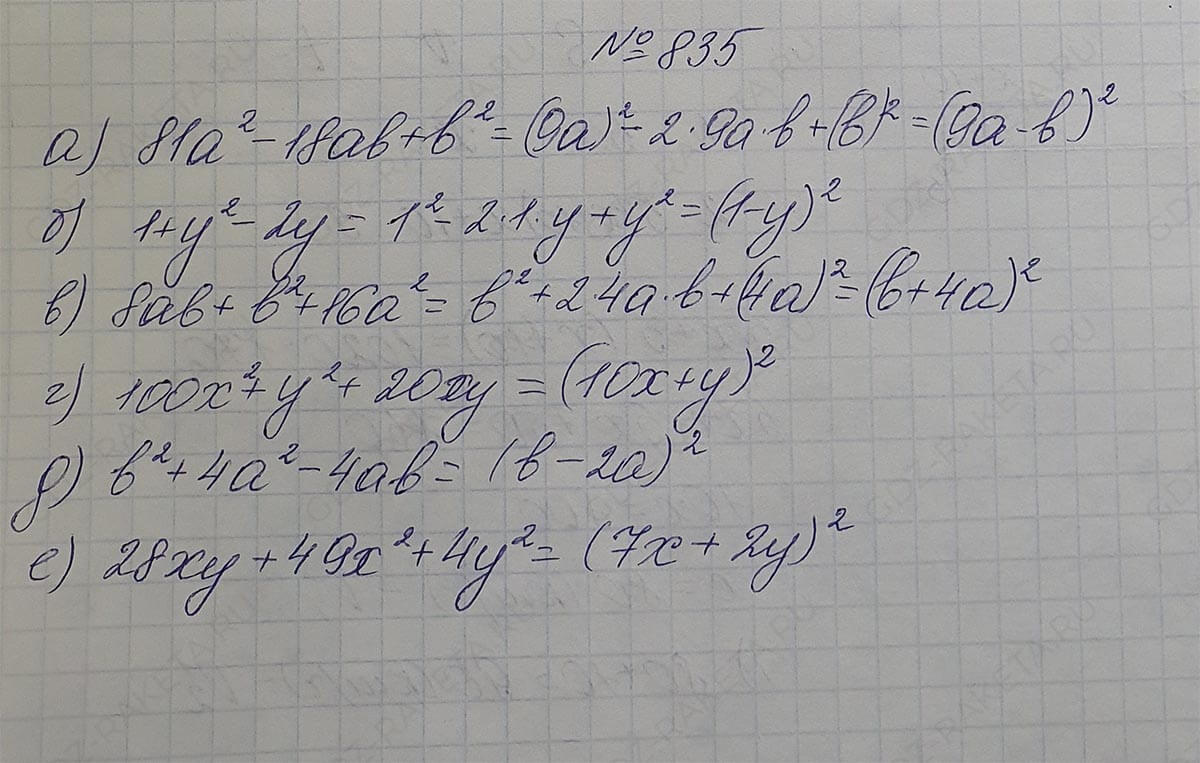 №835
а) 81a² - 18ab + b² = (9a)² - 2·9a·b + (b)² = (9a - b)²
б) 1 + y² - 2y = 1² - 2·1·y + y² = (1 - y)²
в) 8ab + b² + 16a² = b² + 2·4a·b + (4a)² = (b + 4a)²
г) 100x² + y² + 20xy = (10x + y)²
д) b² + 4a² - 4ab = (b - 2a)²
е) 28xy + 49x² + 4y² = (7x + 2y)²